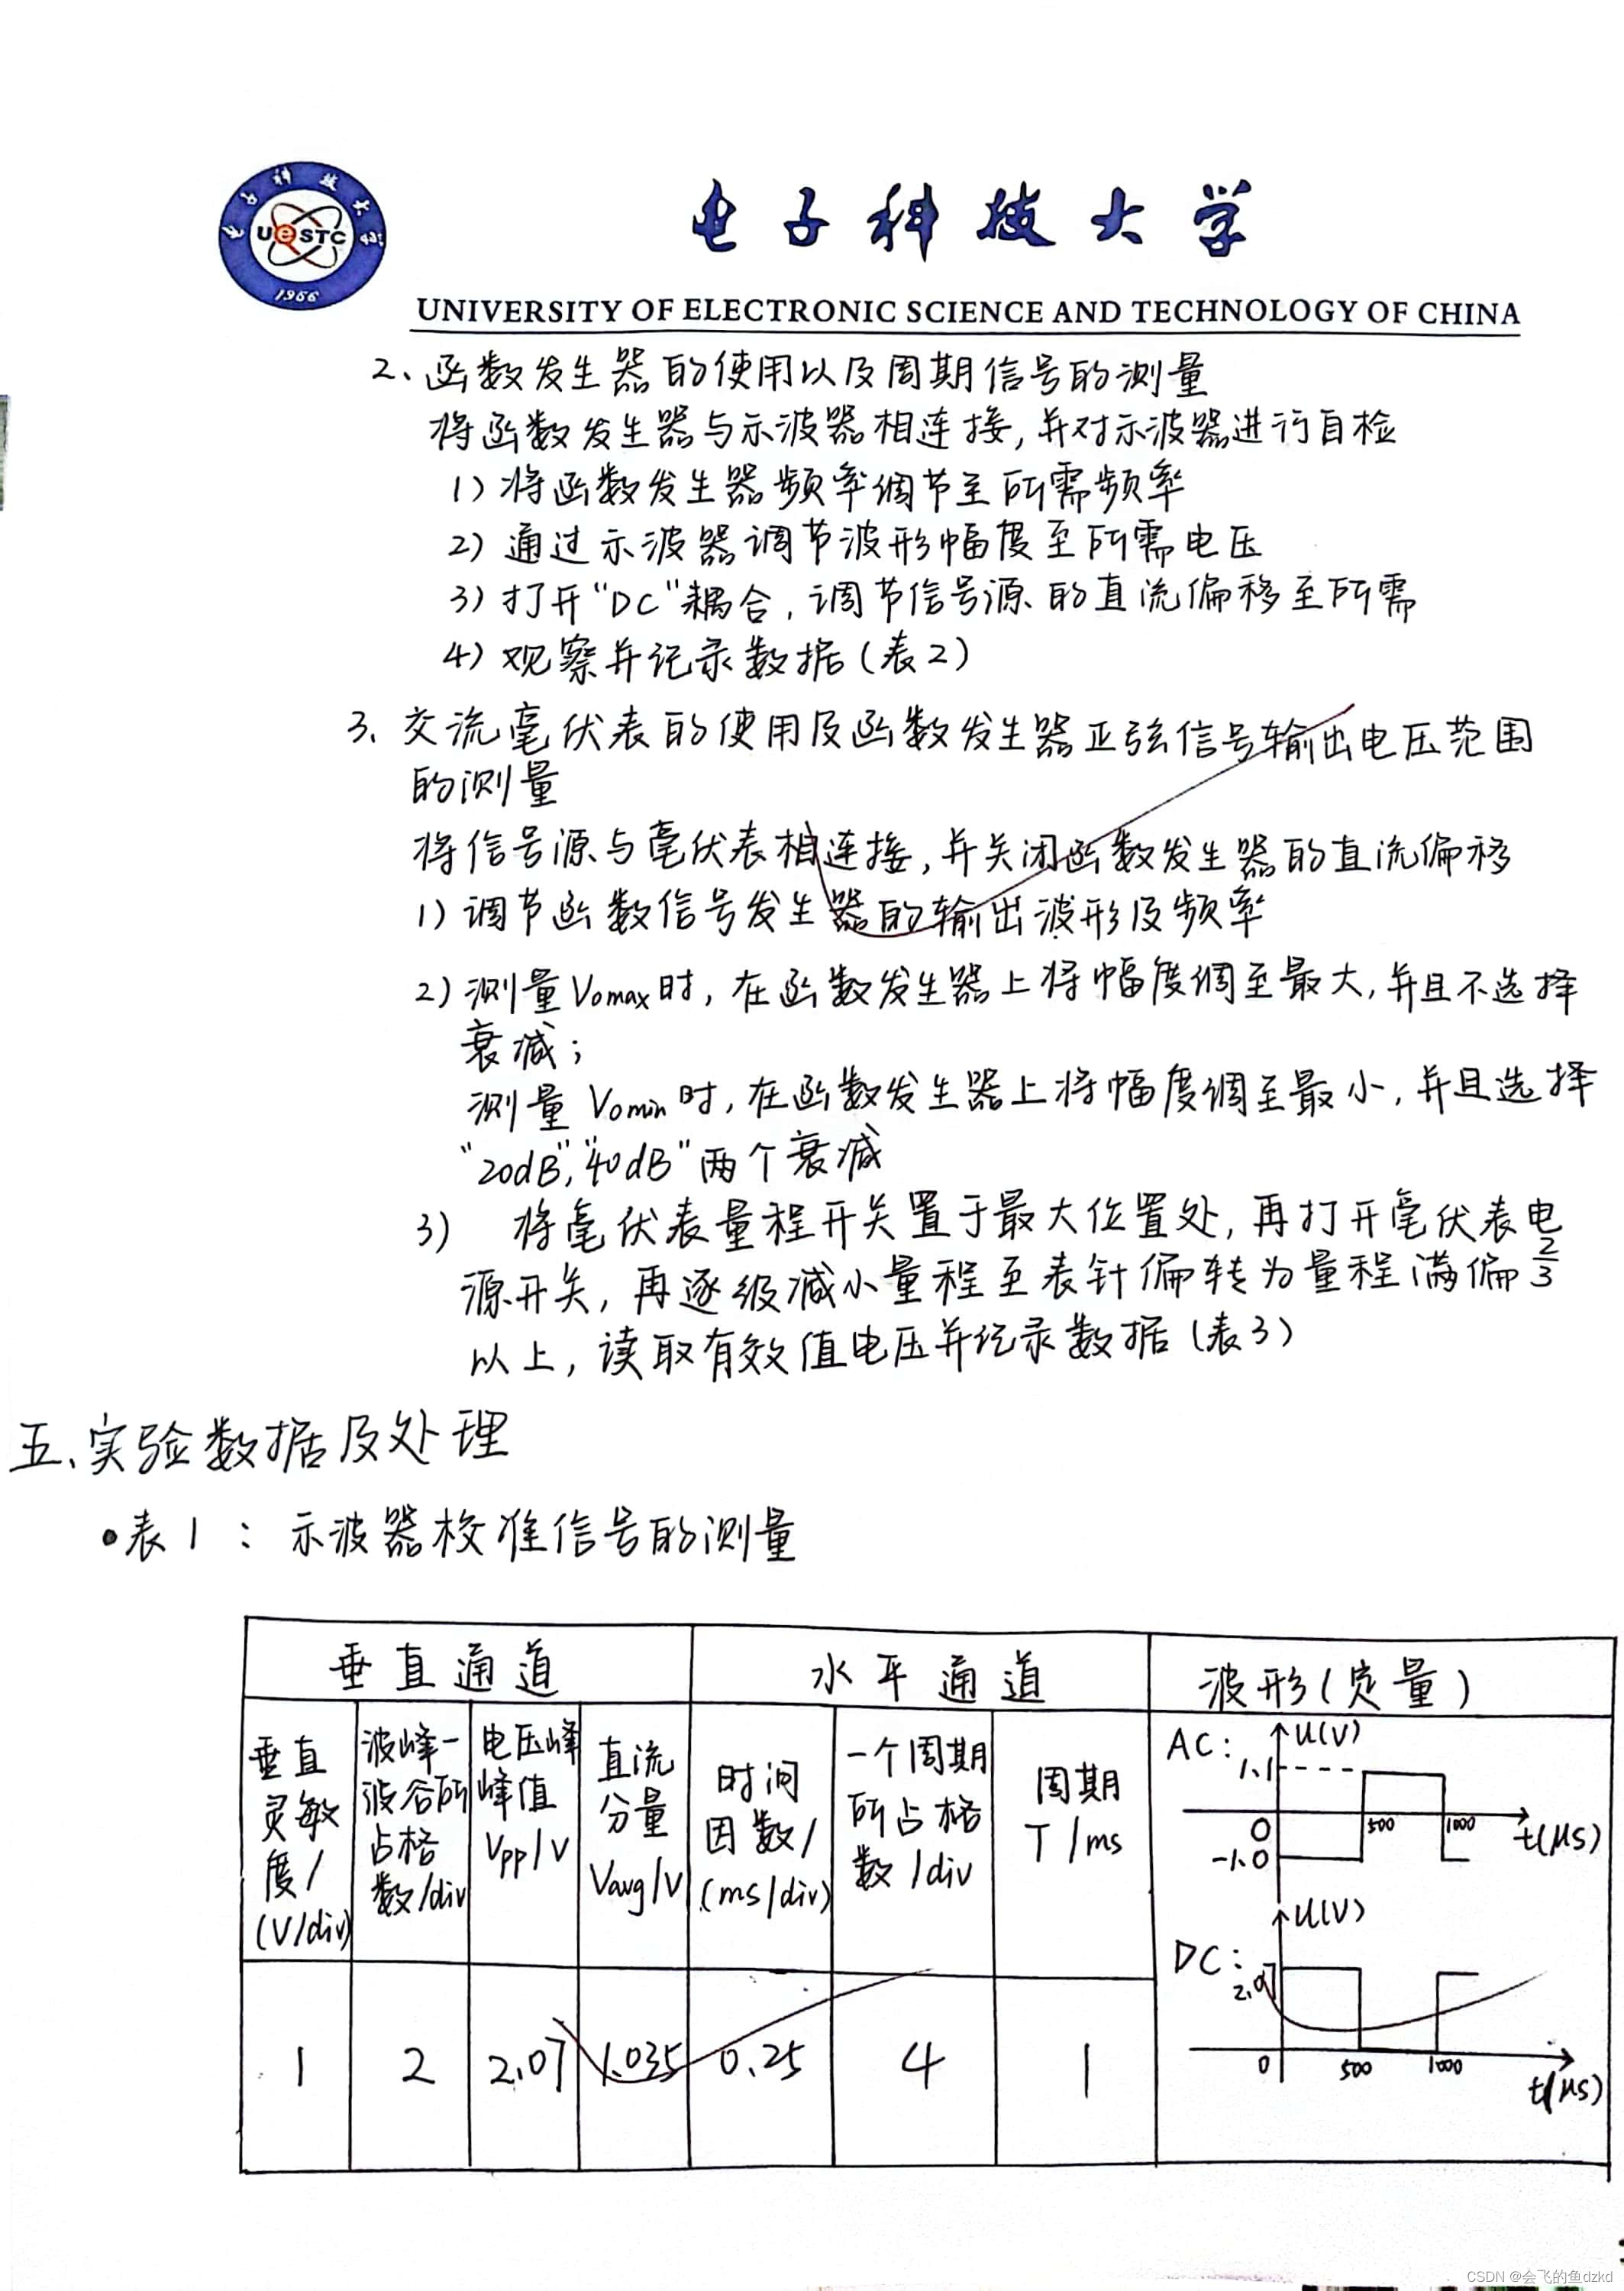 电子科技大学
UeSTC
1956
电子科技大学
UNIVERSITY OF ELECTRONIC SCIENCE AND TECHNOLOGY OF CHINA
2、函数发生器的使用以及周期信号的测量
将函数发生器与示波器相连接,并对示波器进行自检
1)将函数发生器频率调节至所需频率
2)通过示波器调节波形幅度至所需电压
3)打开“DC”耦合,调节信号源的直流偏移至所需
4)观察并记录数据(表2)
3、交流毫伏表的使用及函数发生器正弦信号输出电压范围
的测量
将信号源与毫伏表相连接,并关闭函数发生器的直流偏移
1)调节函数信号发生器的输出波形及频率
2)测量Vomax时,在函数发生器上将幅度调至最大,并且不选择
衰减;
测量Vomin时,在函数发生器上将幅度调至最小,并且选择
“20dB”,“40dB”两个衰减
3) 将毫伏表量程开关置于最大位置处,再打开毫伏表电
源开关,再逐级减小量程至表针偏转为量程满偏2/3
以上,读取有效值电压并记录数据(表3)
五、实验数据及处理
•表1:示波器校准信号的测量
垂直通道 水平通道 波形(定量)
垂直灵敏度/(V/div) 波峰-波谷所占格数/div 电压峰峰值Vpp/V 直流分量Vavg/V 时间因数/(ms/div) 一个周期所占格数/div 周期T/ms
AC: u(V) 1.1 0 -1.0 500 1000 t(μs)
DC: u(V) 2.07 0 500 1000 t(μs)
1 2 2.07 1.035 0.25 4 1
CSDN @会飞的鱼dzkd